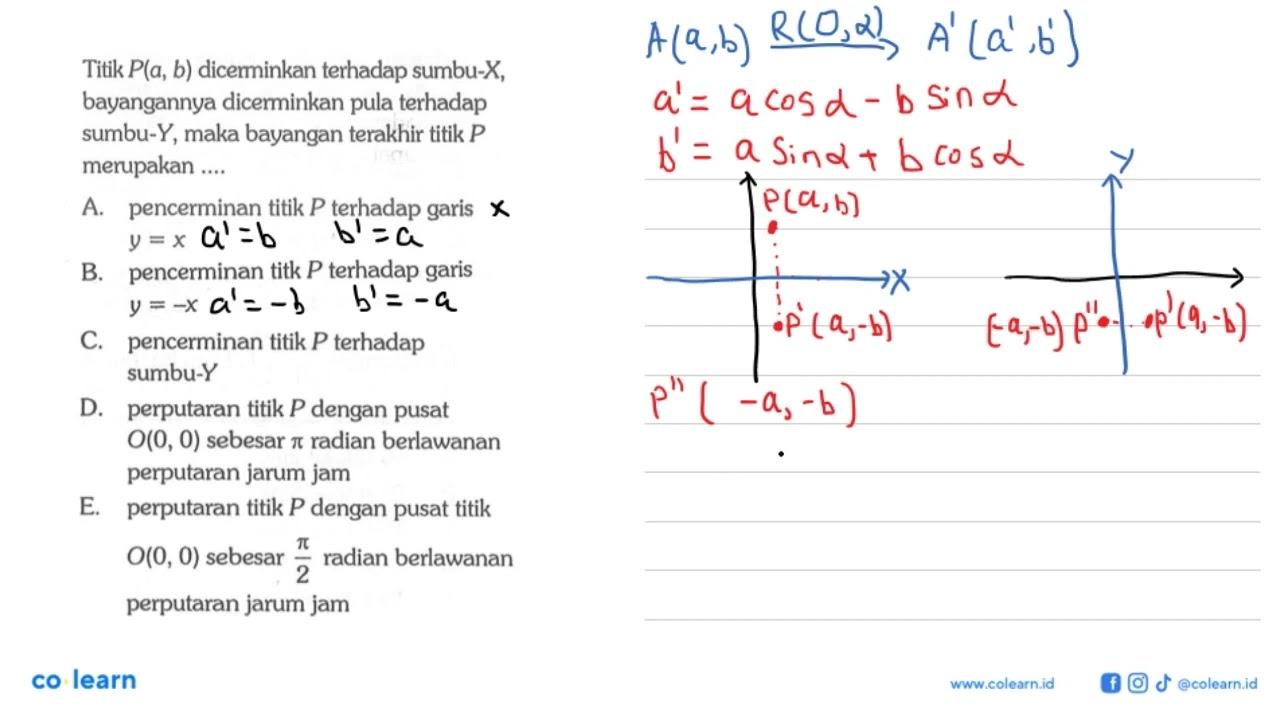 Titik P(a, b) dicerminkan terhadap sumbu-X,
bayangannya dicerminkan pula terhadap
sumbu-Y, maka bayangan terakhir titik P
merupakan ....
A. pencerminan titik P terhadap garis x
y = x a' = b b' = a
B. pencerminan titk P terhadap garis
y = –x a' = -b b' = -a
C. pencerminan titik P terhadap
sumbu-Y
D. perputaran titik P dengan pusat
O(0, 0) sebesar π radian berlawanan
perputaran jarum jam
E. perputaran titik P dengan pusat titik
O(0, 0) sebesar π/2 radian berlawanan
perputaran jarum jam
A(a,b) R(O,α) A'(a',b')
a' = a cos α - b sin α
b' = a sin α + b cos α
P(a,b)
X
P'(a,-b)
Y
(-a,-b) P'' P'(a,-b)
P''( -a, -b)
co learn
www.colearn.id @colearn.id